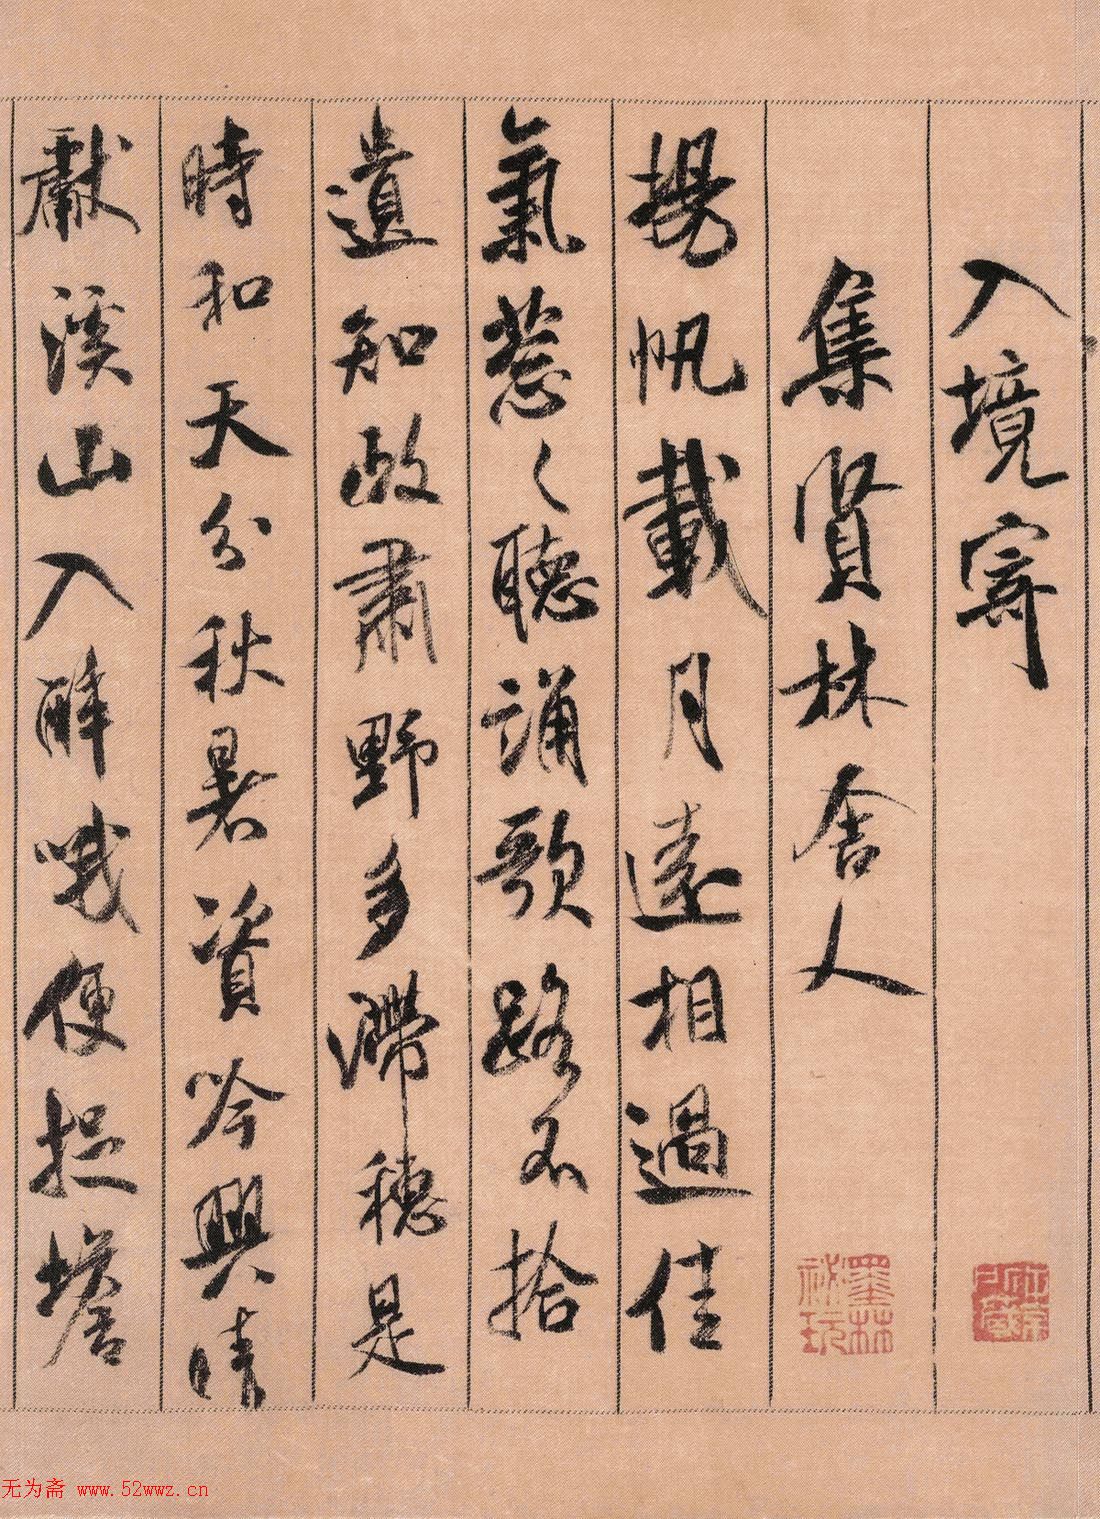 入境寄
集賢林舍人
揚帆載月遠相過佳
氣葱〻聽誦歌路不拾
遺知政肅野多滯穗是
時和天分秋暑資吟興晴
獻溪山入醉哦便捉蟾
墨林祕玩
无为斋 www.52wwz.cn